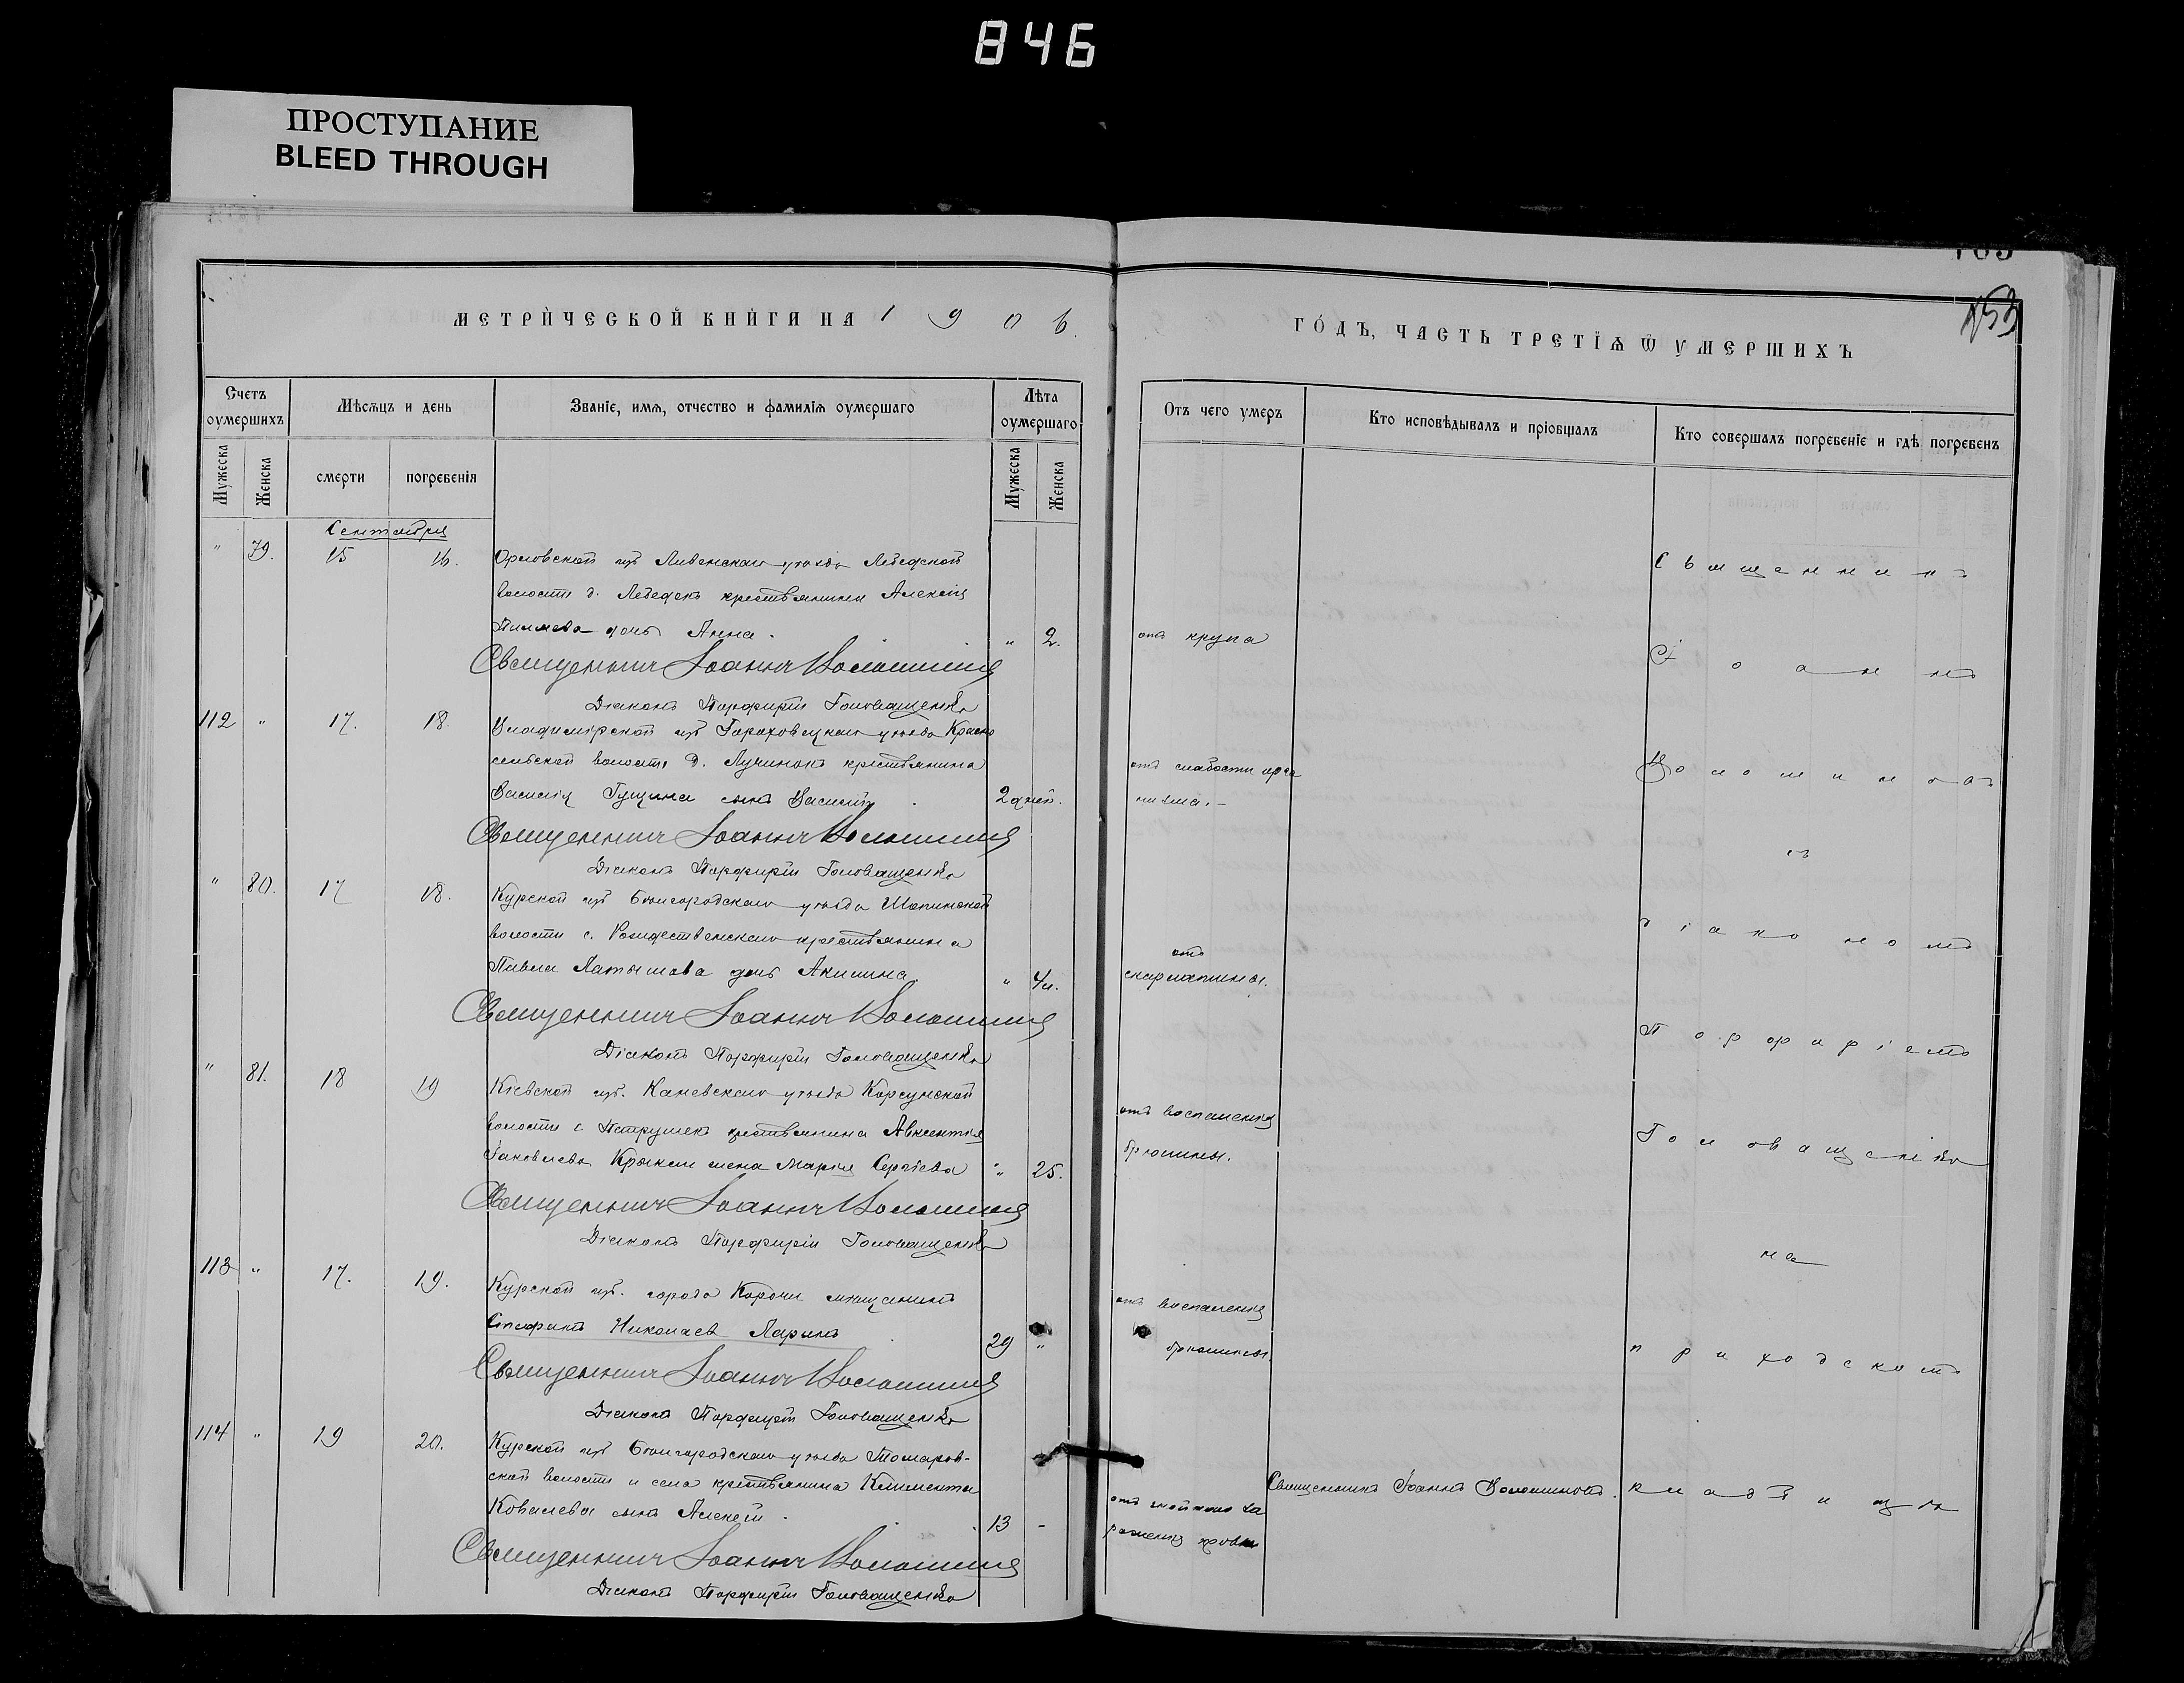 846
ПРОСТУПАНИЕ
BLEED THROUGH
153
МЕТРИЧЕСКОЙ КНИГИ НА 1906.
ГОДЪ, ЧАСТЬ ТРЕТІѦ Ѿ УМЕРШИХЪ
Счетъ оумершихъ
Мѣсѧцъ и день
Званіе, имѧ, отчество и фамиліѧ оумершаго
Лѣта оумершаго
Отъ чего умеръ
Кто исповѣдывалъ и пріобщалъ
Кто совершалъ погребеніе и гдѣ погребенъ
Мужеска
Женска
смерти
погребенія
Мужеска
Женска
Сентября
" 79. 15 16. Орловской губ Ливенскаго уѣзда
волости д. крестьянина Алексія
дочь Анна. " 2. отъ крупа
Священникъ Іоаннъ Волошиновъ
Діаконъ Порфирій Головащенко
112 " 17. 18. Владимірской губ Гороховецкаго уѣзда Красно
сельской волости д. Лучинокъ крестьянина
Василія Гущина сынъ Василій. 2 дней. отъ слабости орга
низма. -
Священникъ Іоаннъ Волошиновъ
Діаконъ Порфирій Головащенко
" 80. 17 18. Курской губ Бѣлгородскаго уѣзда Шопинской
волости с. Рождественскаго крестьянина
Павла Латышева дочь Акилина " 4 м. отъ скарлатины.
Священникъ Іоаннъ Волошиновъ
Діаконъ Порфирій Головащенко
" 81. 18 19 Кіевской губ. Каневскаго уѣзда Корсунской
волости с. Петрушекъ крестьянина Авксентія
Іаковлева жена Марія Сергіева " 25. отъ воспаленія
брюшины.
Священникъ Іоаннъ Волошиновъ
Діаконъ Порфирій Головащенко
113 " 17. 19. Курской губ. города Корочи мѣщанинъ
Стефанъ Николаевъ Ларинъ 29 " отъ воспаленія
брюшины.
Священникъ Іоаннъ Волошиновъ
Діаконъ Порфирій Головащенко
114 " 19 20. Курской губ Бѣлгородскаго уѣзда Томаров-
ской волости и села крестьянина Климента
Ковалева сынъ Алексій. 13 - отъ гнойнаго за
раженія крови
Священникъ Іоаннъ Волошиновъ.
Священникъ Іоаннъ Волошиновъ
Діаконъ Порфирій Головащенко
Священникъ
Іоаннъ
Волошиновъ
съ
діакономъ
Порфиріемъ
Головащенко
на
приходскомъ
кладбищѣ